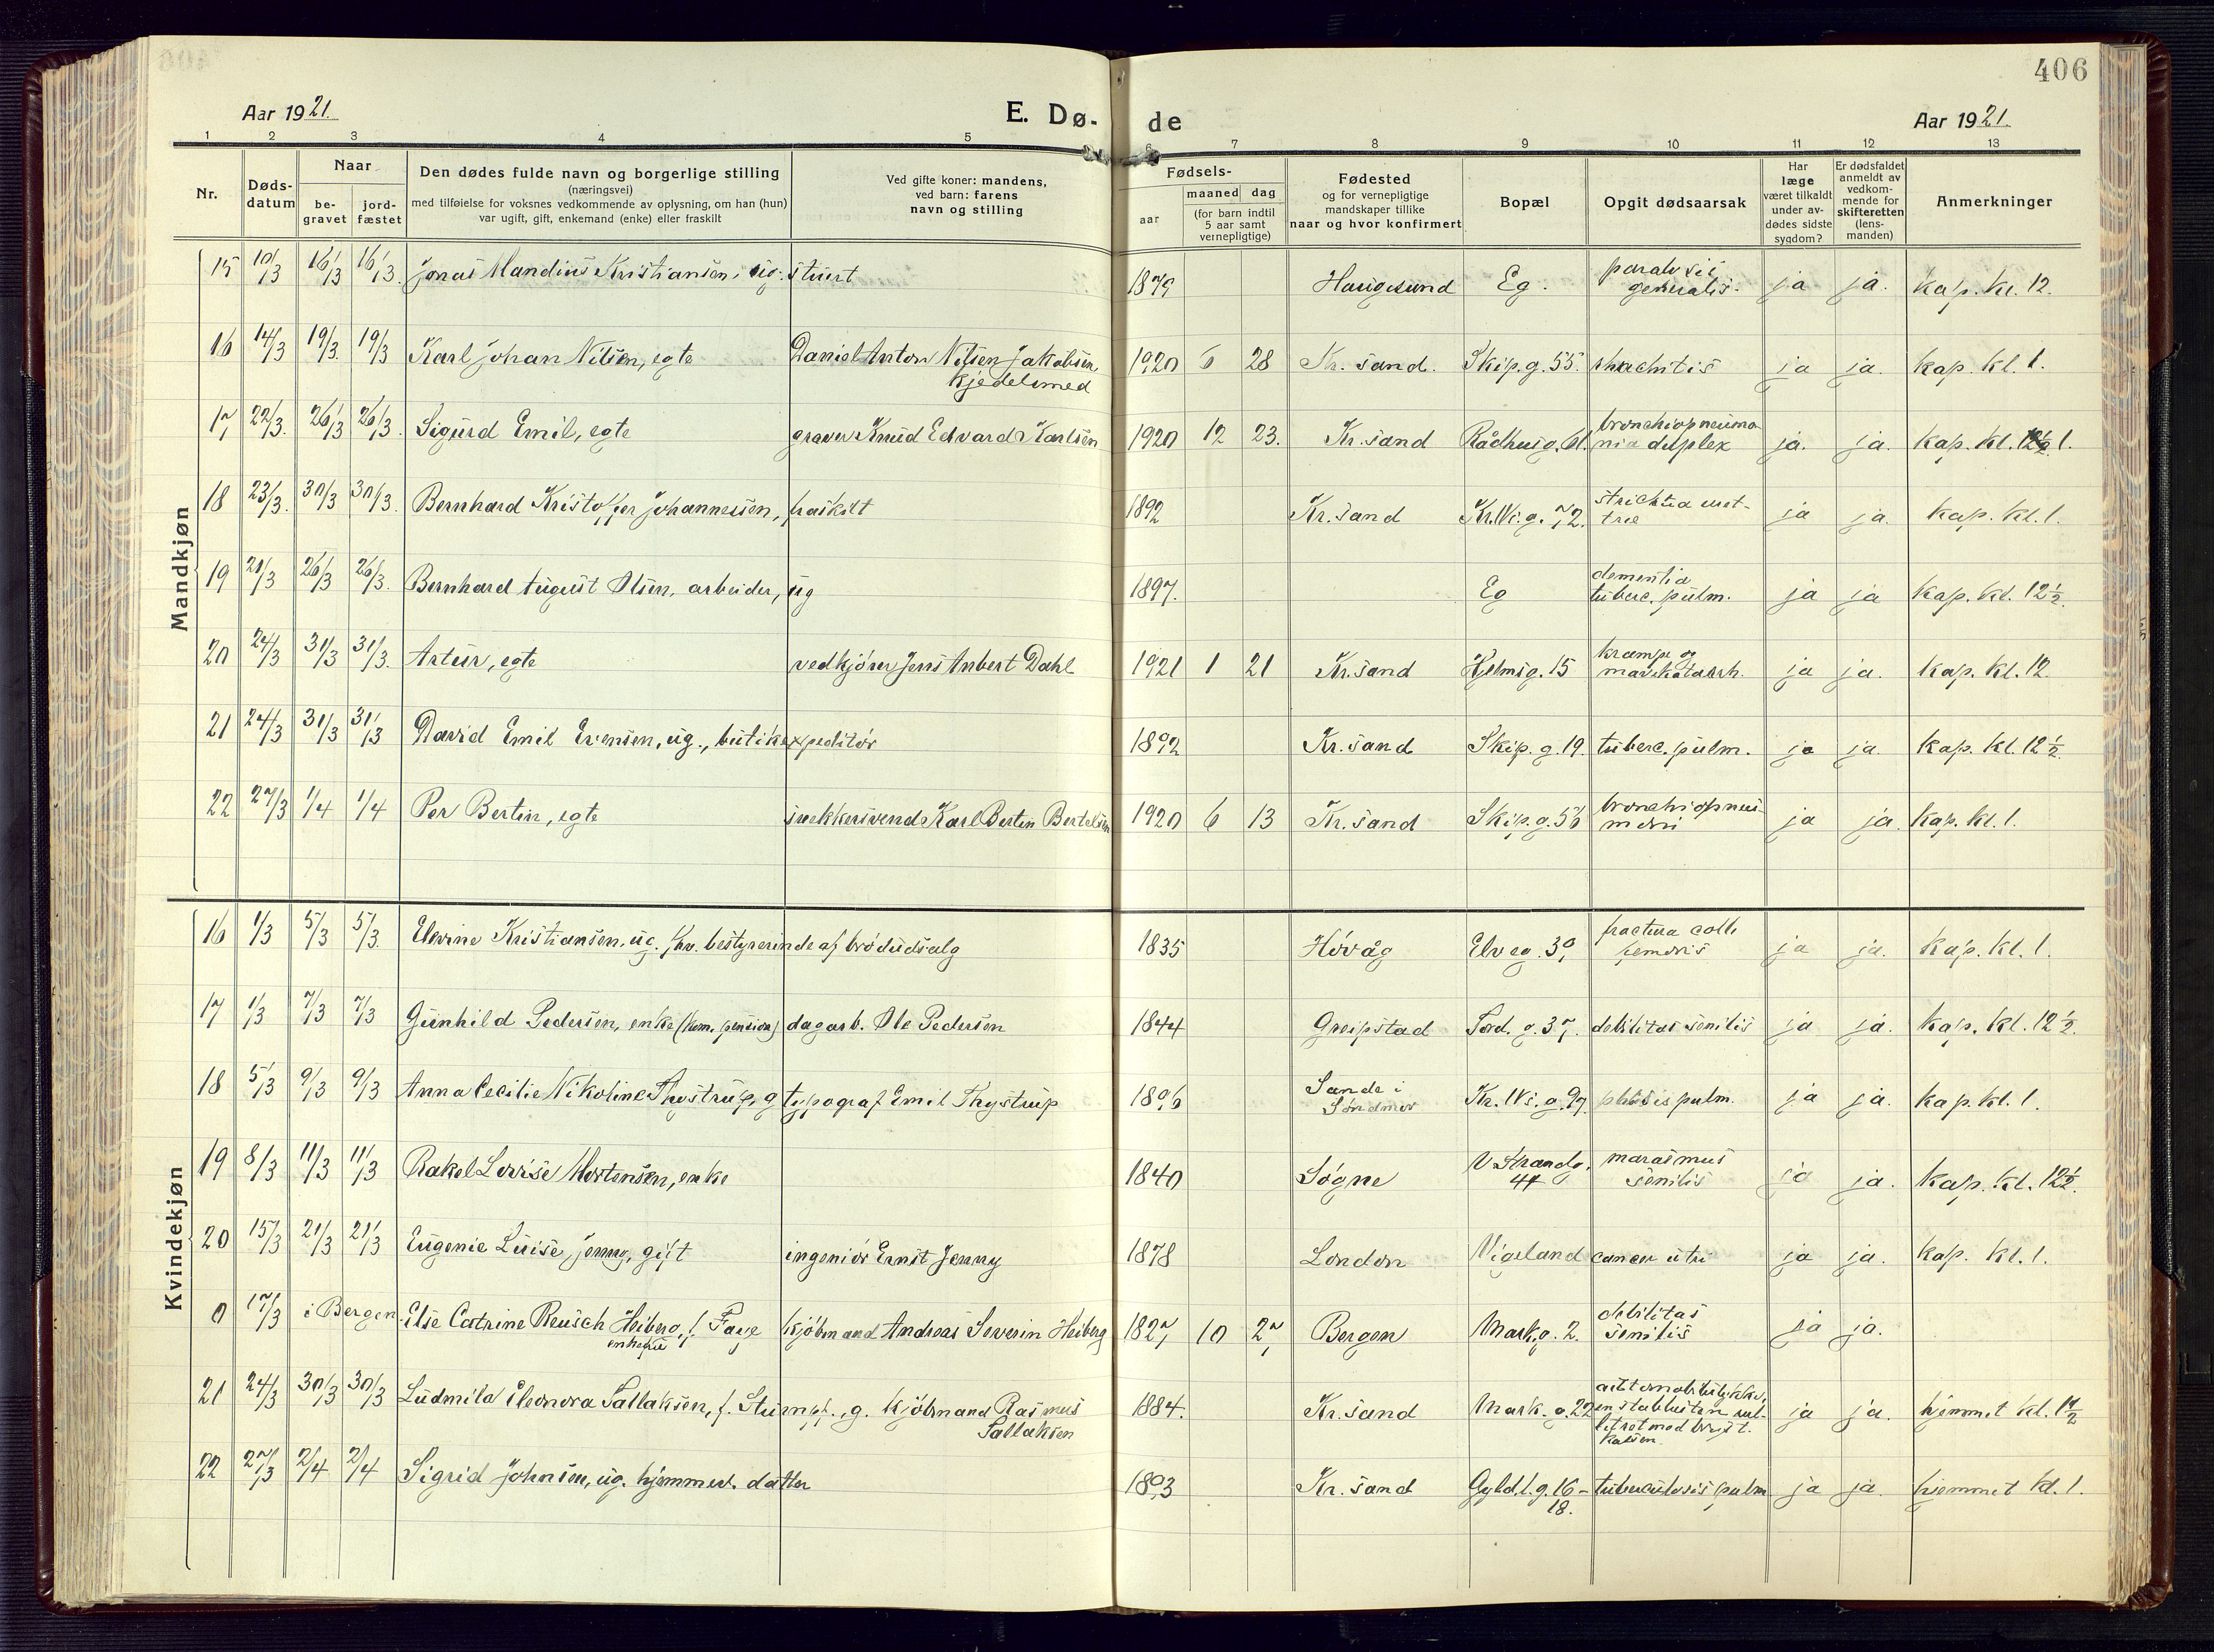 406
Aar 1921.
E. Dø-
de
Aar 1921.
1 2 3 4 5 6 7 8 9 10 11 12 13
Nr.
Døds-
datum
Naar
be-
gravet
jord-
fæstet
Den dødes fulde navn og borgerlige stilling
(næringsvei)
med tilføielse for voksnes vedkommende av oplysning, om han (hun)
var ugift, gift, enkemand (enke) eller fraskilt
Ved gifte koner: mandens,
ved barn: farens
navn og stilling
Fødsels-
aar
maaned
dag
(for barn indtil
5 aar samt
vernepligtige)
Fødested
og for vernepligtige
mandskaper tillike
naar og hvor konfirmert
Bopæl
Opgit dødsaarsak
Har
læge
været tilkaldt
under av-
dødes sidste
sygdom?
Er dødsfaldet
anmeldt av
vedkom-
mende for
skifteretten
(lens-
manden)
Anmerkninger
Mandkjøn
15 10/3 16/3 16/3. Jonas Mandius Kristiansen, ug. stuert 1879 Haugesund Eg. paralysis
generalis. ja ja. kap. kl. 12.
16 14/3 19/3. 19/3 Karl Johan Nilsen, egte Daniel Anton Nilsen Jakobsen,
kjedelsmed 1920 6 28 Kr.sand. Skip.g. 55. rhachitis ja ja. kap. kl. 1.
17 22/3. 26/3 26/3. Sigurd Emil, egte graver Knud Edvard Karlsen 1920 12 23. Kr.sand Rådhusg. 61. bronchiopneumo
nia duplex ja. ja. kap. kl. 1.
18 23/3. 30/3 30/3. Bernhard Kristoffer Johannessen, fraskilt 1892 Kr.sand Kr.IV.g. 72. ja ja. kap. kl. 1.
19 21/3 26/3 26/3. Bernhard August Olsen, arbeider, ug 1897. Eg dementia
tuberc. pulm. ja ja kap. kl. 12 1/2.
20 24/3 31/3 31/3. Artur, egte vedkjører Jens Anbert Dahl 1921 1 21 Kr.sand Holmsg. 15 krampe og
mavekatarrh. ja ja. kap. kl. 12.
21 24/3 31/3 31/3 David Emil Evensen, ug., butikexpeditør 1892 Kr.sand Skip.g. 19. tuberc. pulm. ja ja. kap. kl. 12 1/2.
22 27/3 1/4 1/4 Per Bertin, egte snekkersvend Karl Bertin Bertelsen 1920 6 13 Kr.sand Skip.g. 56 bronchiopneu-
moni ja ja. kap. kl. 1.
Kvindekjøn
16 1/3 5/3 5/3. Elevine Kristiansen, ug. fhv. bestyrerinde af brødudsalg 1835 Høvåg Elveg. 39 fractura colli
femoris ja ja. kap. kl. 1.
17 1/3 7/3 7/3 Gunhild Pedersen, enke (kom. pension) dagarb. Ole Pedersen 1844 Greipstad Tord.g. 37. debilitas senilis ja ja. kap. kl. 12 1/2.
18 5/3 9/3 9/3 Anna Cecilie Nikoline Thystrup, g typograf Emil Thystrup 1896 Sande i
Søndmør Kr. IV.s.g. 97 phtisis pulm. ja ja. kap. kl. 1.
19 8/3 11/3 11/3 Rakel Lovise Mortensen, enke 1840 Søgne V. Strandg.
44 marasmus
senilis ja ja. kap. kl. 12 1/2.
20 15/3 21/3 21/3 Eugenie Luise Jenny, gift ingeniør Ernst Jenny 1878 London Vigeland cancer utri ja ja. kap. kl. 1.
0 17/3 i Bergen. Else Catrine Reusch Heiberg, f. Faye
enkefru kjøbmand Andreas Severin Heiberg 1827 10 27 Bergen Mark.g. 2. debilitas
senilis ja ja.
21 24/3 30/3 30/3 Ludmila Eleonora Sallaksen, f. Stumpf., g. kjøbmand Rasmus
Sallaksen 1884. Kr.sand Mark.g. 22 ja ja. hjemmet kl.
22 27/3 2/4 2/4 Sigrid Johnsen, ug. hjemmev. datter 1893 Kr.sand Gyld.l.g. 16-
18. tuberculosis pulm ja ja. hjemmet kl. 1.